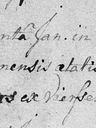 ntã Jan. in
nensis ætatis
rs ex Vierse